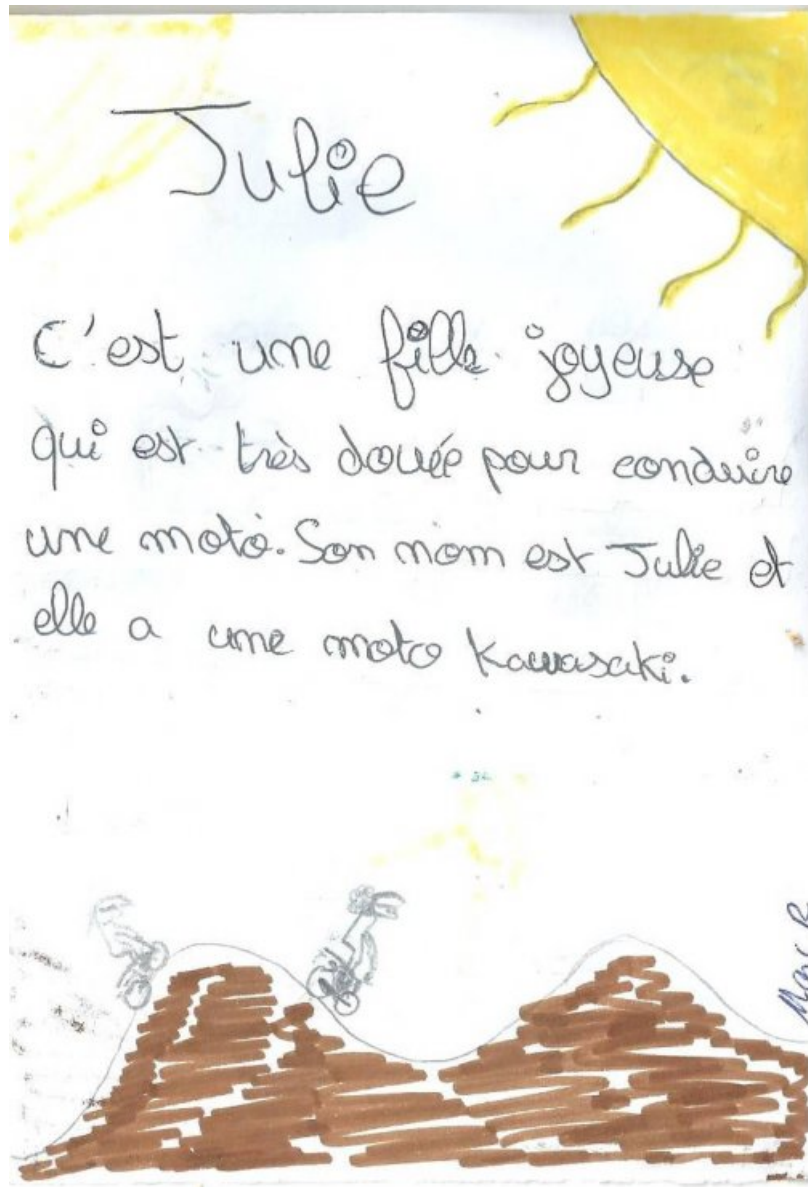 Julie
C'est une fille joyeuse
qui est très douée pour conduire
une moto. Son nom est Julie et
elle a une moto Kawasaki.